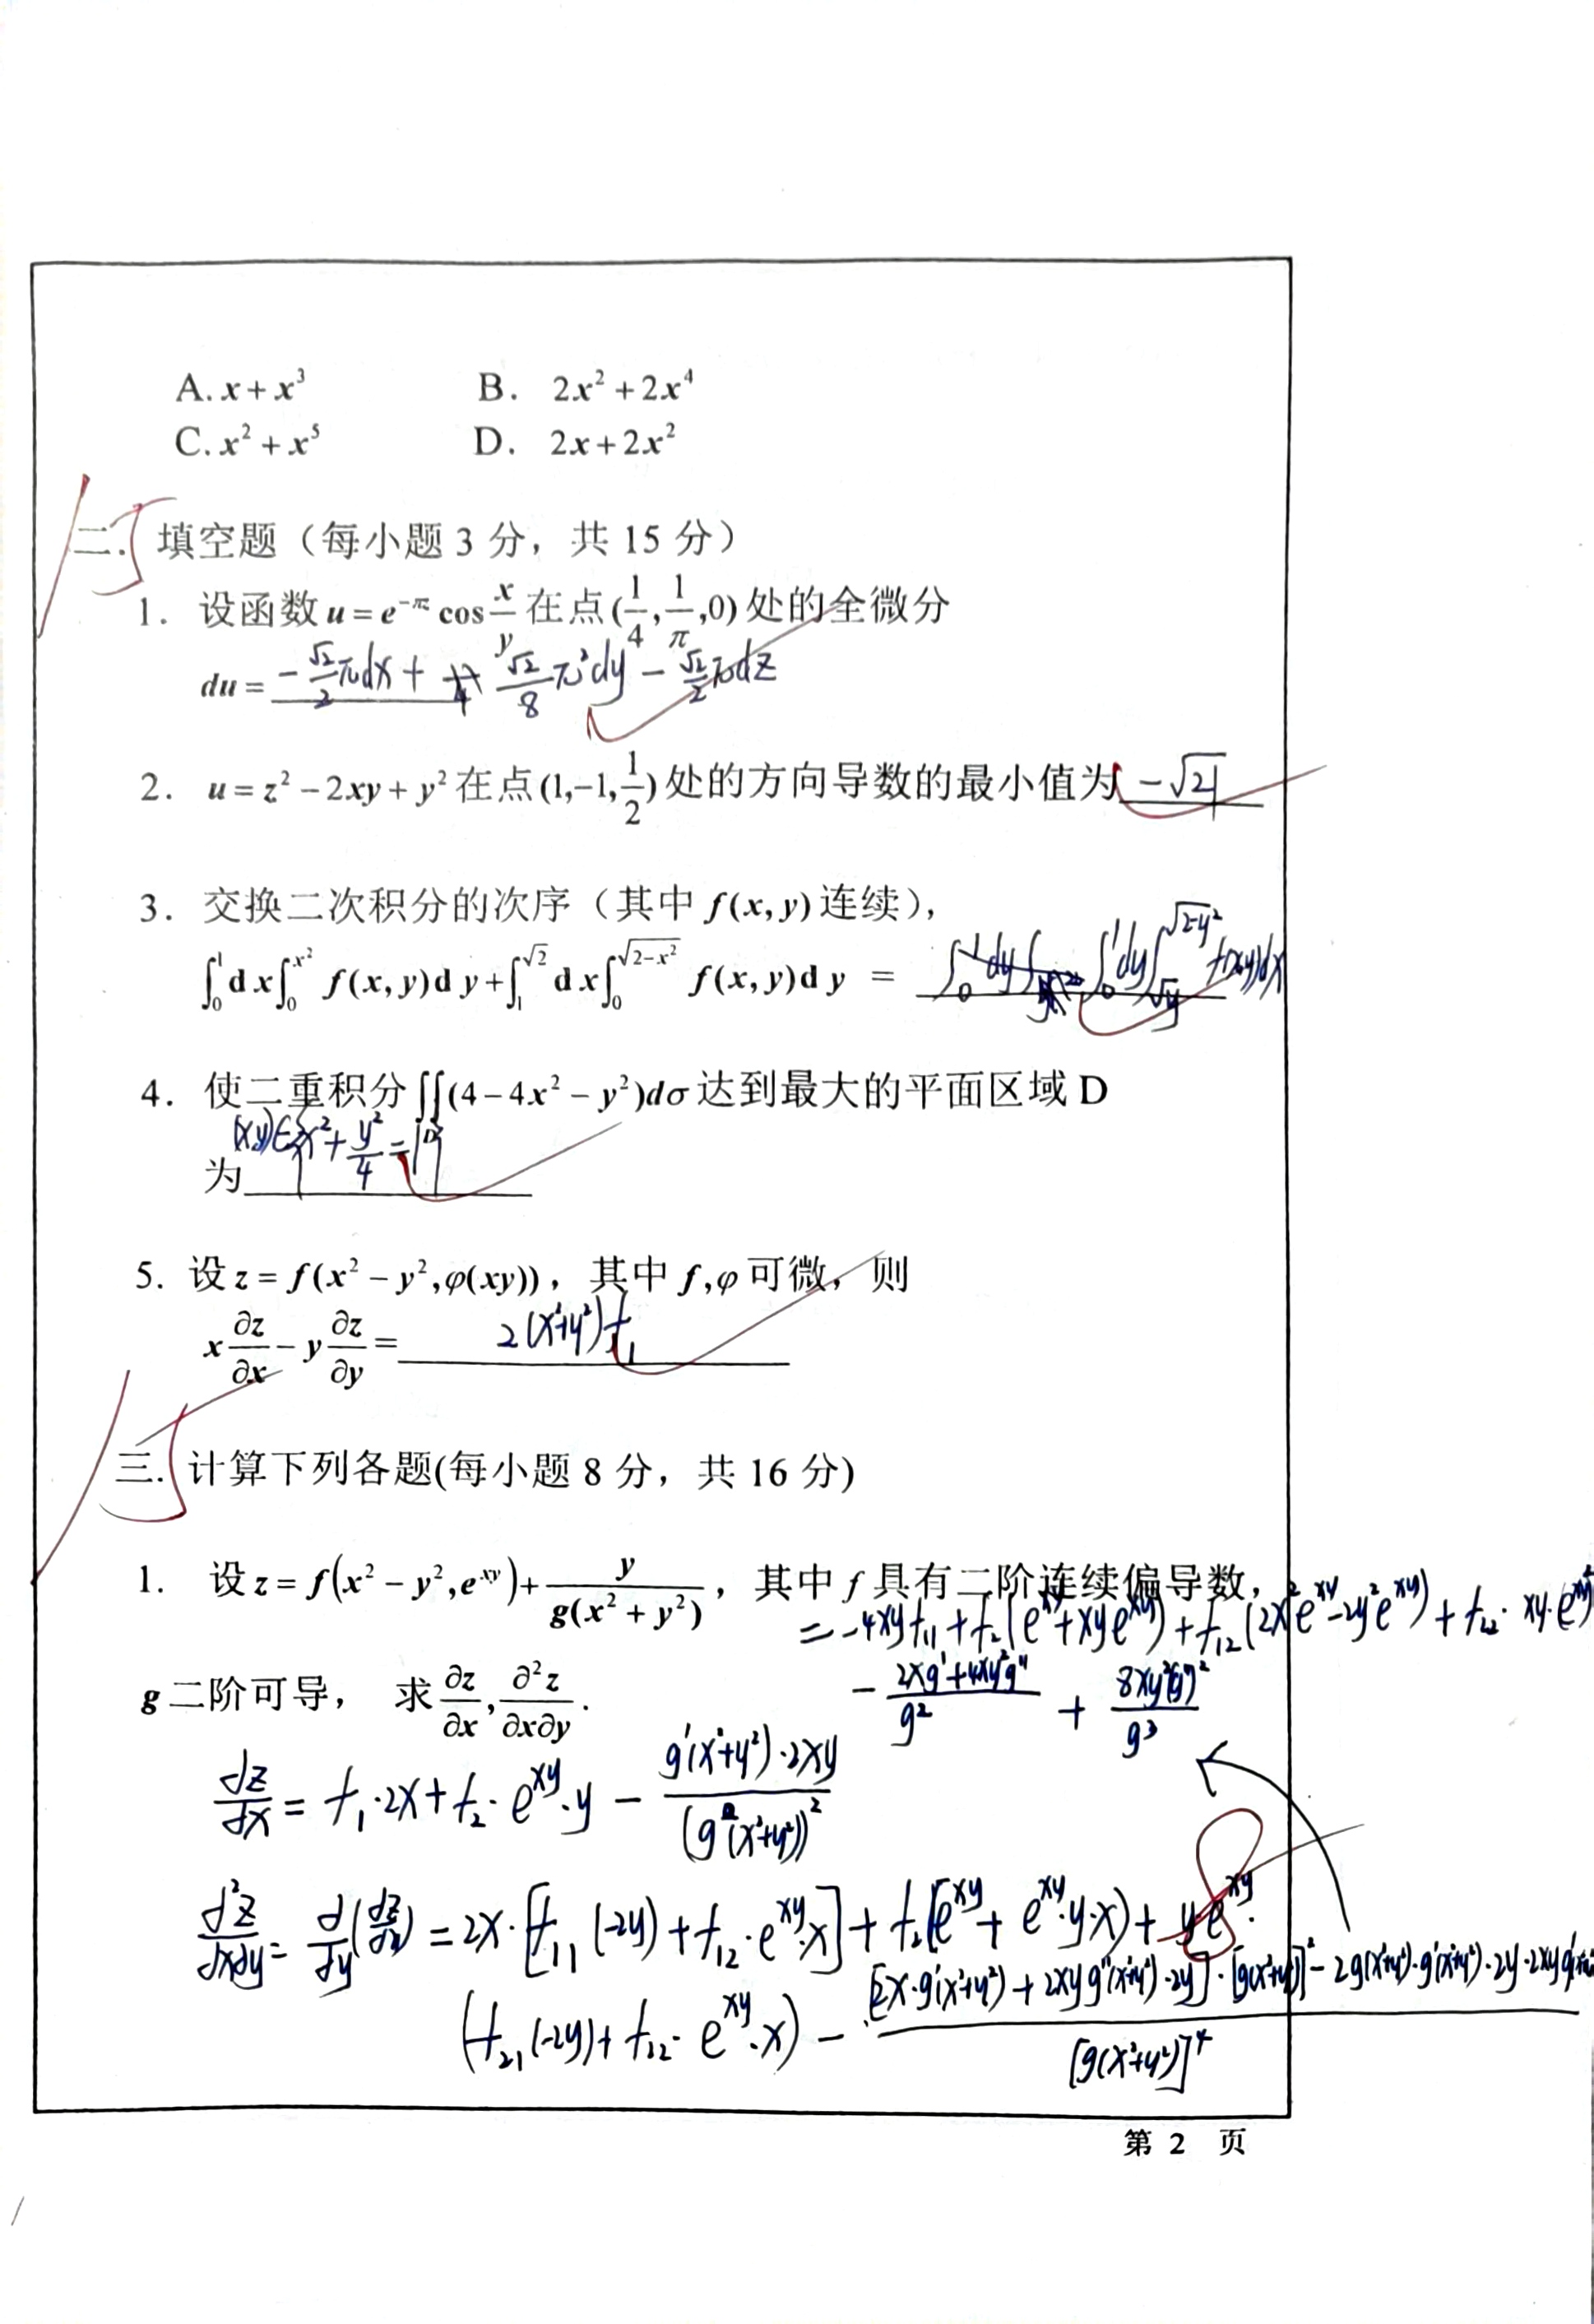 A. x + x³ B. 2x² + 2x⁴
C. x² + x⁵ D. 2x + 2x²
二. 填空题（每小题 3 分，共 15 分）
1. 设函数 u = e^{-πz} cos x/y 在点 (1/4, 1/π, 0) 处的全微分
du = -√2/2 πdx + √2/8 π²dy - √2/2 πdz
2. u = z² - 2xy + y² 在点 (1,-1,1/2) 处的方向导数的最小值为 -√21
3. 交换二次积分的次序（其中 f(x, y) 连续），
∫₀¹ dx ∫₀^{x²} f(x, y)d y + ∫₁^{√2} dx ∫₀^{√(2-x²)} f(x, y)d y = ∫₀¹ dy ∫_{√y}^{√(2-y²)} f(x,y)dx
4. 使二重积分 ∬_D (4 - 4x² - y²)dσ 达到最大的平面区域 D
为 (x,y)∈{x² + y²/4 = 1}
5. 设 z = f(x² - y², φ(xy))，其中 f,φ 可微，则
x ∂z/∂x - y ∂z/∂y = 2(x²+y²)f₁
三. 计算下列各题(每小题 8 分，共 16 分)
1. 设 z = f(x² - y², e^{xy}) + y/g(x² + y²)，其中 f 具有二阶连续偏导数，
= -4xyf₁₁ + f₂(e^{xy} + xye^{xy}) + f₁₂(2x²e^{xy} - 2y²e^{xy}) + f₂₂· xy·
g 二阶可导， 求 ∂z/∂x, ∂²z/∂x∂y.
- (2xg' + 4xy²g'')/g² + 8xy²(g')²/g³
∂z/∂x = f₁·2x + f₂· e^{xy}·y - g'(x²+y²)·2xy/(g(x²+y²))²
∂²z/∂x∂y = ∂/∂y(∂z/∂x) = 2x·[f₁₁(-2y) + f₁₂·e^{xy}·x] + f₂(e^{xy} + e^{xy}·y·x) + ye^{xy}·
(f₂₁(-2y) + f₂₂· e^{xy}·x) - [2x·g'(x²+y²) + 2xyg''(x²+y²)·2y]·[g(x²+y²)]² - 2g(x²+y²)·g'(x²+y²)·2y·2xy/[g(x²+y²)]⁴
第 2 页